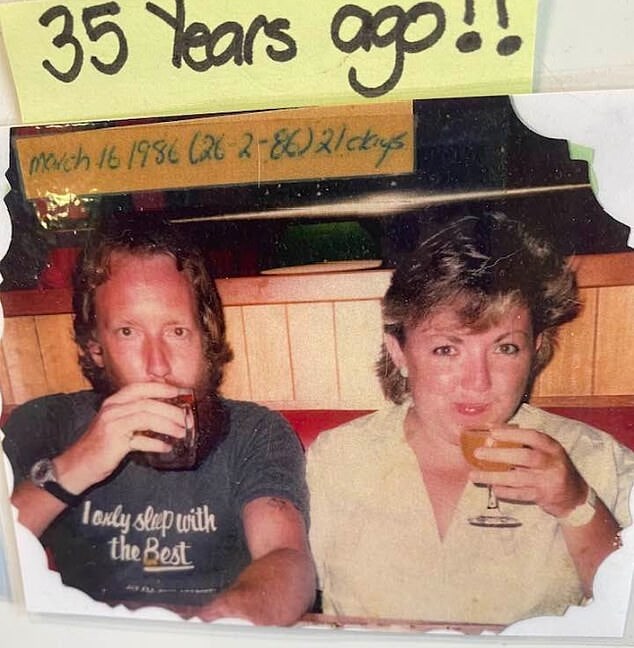 35 Years ago!!
March 16 1986 (26-2-86) 21 days
I only sleep with
the Best